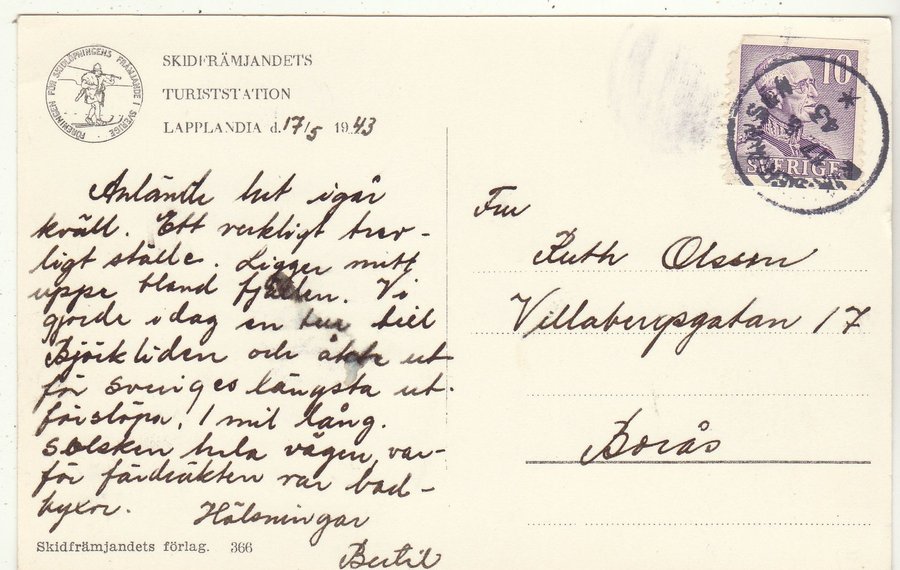 FÖRENINGEN FÖR SKIDLÖPNINGENS FRÄMJANDE I SVERIGE
SKIDFRÄMJANDETS
TURISTSTATION
LAPPLANDIA d. 17/5 1943
Anlände hit igår
kväll. Ett verkligt trev-
ligt ställe. Ligger mitt
uppe bland fjällen. Vi
gjorde idag en tur till
Björkliden och åkte ut
för Sveriges längsta ut-
förslöpa, 1 mil lång.
Solsken hela vägen var-
för färddräkten var bad-
byxor. Hälsningar
Bertil
Skidfrämjandets förlag. 366
10
SVERIGE
17 5
43
Fru
Ruth Olsson
Villabergsgatan 17
Borås